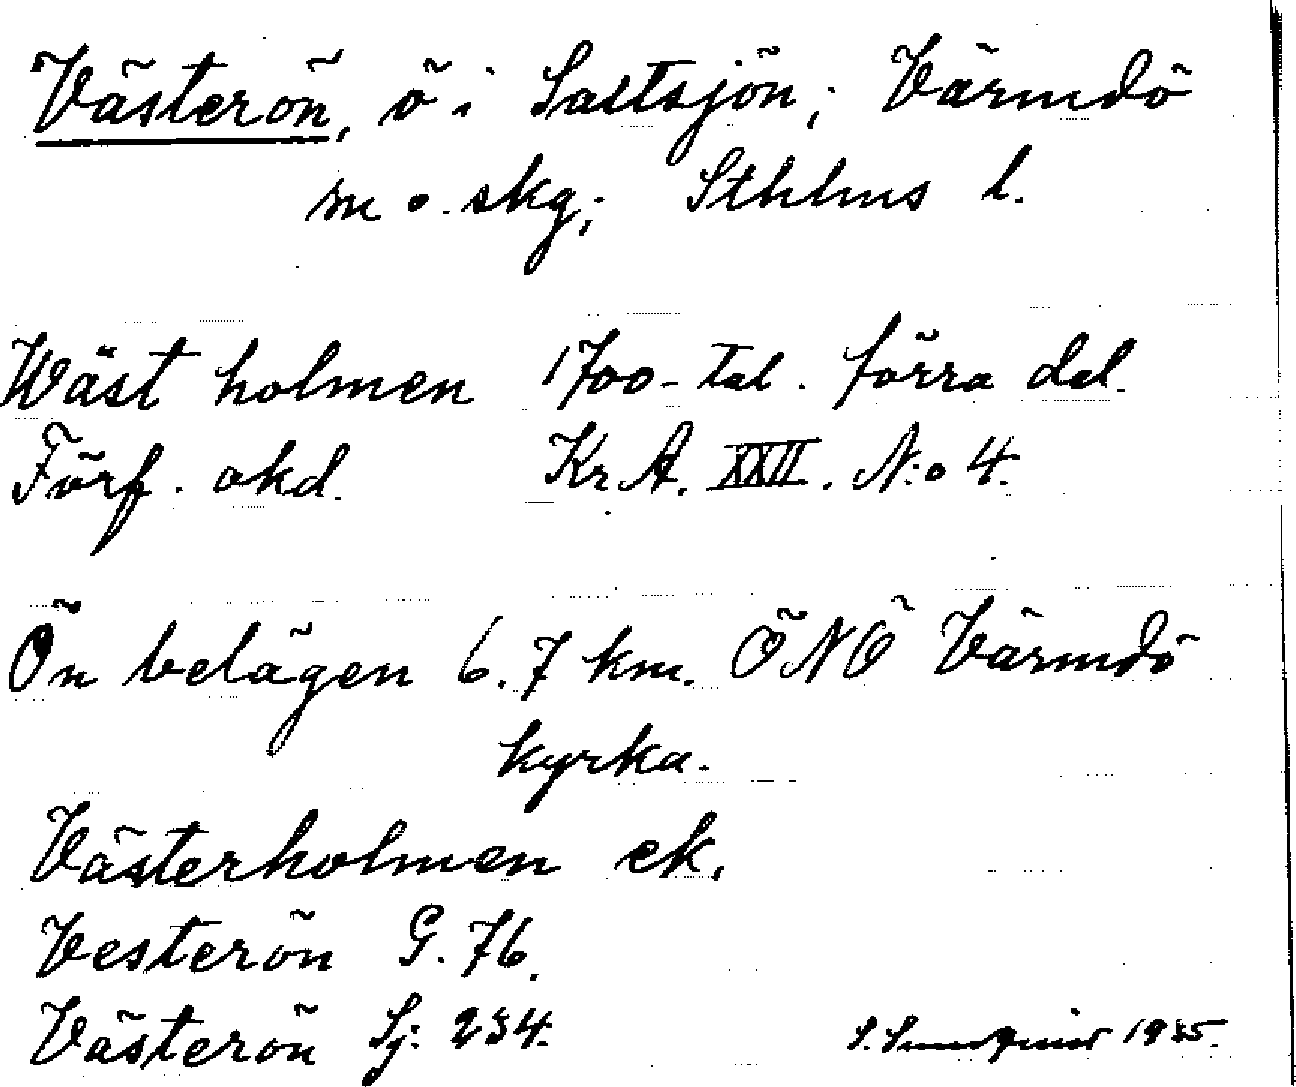 Västerön, ö i Saltsjön; Värmdö
m o. skg; Sthlms l.
Wäst holmen 1700-tal. förra del.
Förf. okd. Kr. A. XXII. N:o 4.
Ön belägen 6.7 km. ÖNÖ Värmdö
kyrka.
Västerholmen ek.
Vesterön G. 76.
Västerön Sj: 234.
1935.